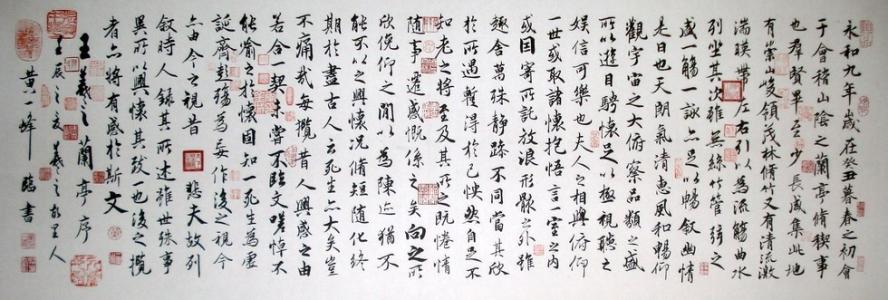 永和九年歲在癸丑暮春之初會
于會稽山陰之蘭亭脩稧事
也群賢畢至少長咸集此地
有崇山峻領茂林脩竹又有清流激
湍暎帶左右引以為流觴曲水
列坐其次雖無絲竹管弦之
盛一觴一詠亦足以暢敘幽情
是日也天朗氣清惠風和暢仰
觀宇宙之大俯察品類之盛
所以遊目騁懷足以極視聽之
娛信可樂也夫人之相與俯仰
一世或取諸懷抱悟言一室之內
或因寄所託放浪形骸之外雖
趣舍萬殊靜躁不同當其欣
於所遇暫得於己怏然自足不
知老之將至及其所之既惓情
隨事遷感慨係之矣向之所
欣俛仰之間以為陳迹猶不
能不以之興懷況脩短隨化終
期於盡古人云死生亦大矣豈
不痛哉每攬昔人興感之由
若合一契未嘗不臨文嗟悼不
能喻之於懷固知一死生為虛
誕齊彭殤為妄作後之視今
亦由今之視昔 悲夫故列
敘時人錄其所述雖世殊事
異所以興懷其致一也後之攬
者亦將有感於斯文
王羲之蘭亭序
壬辰之夏羲之故里人
黃一峰臨書